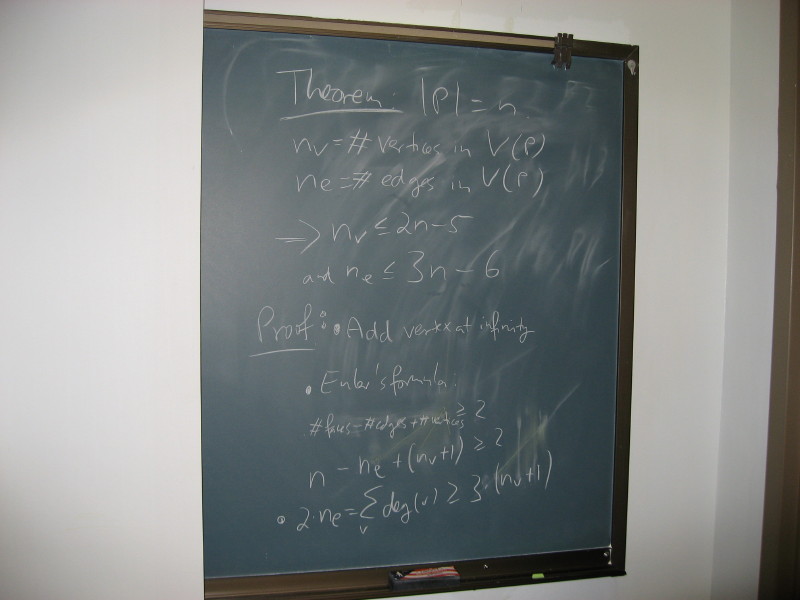 Theorem: |P| = n.
nv = # vertices in V(P)
ne = # edges in V(P)
=> nv ≤ 2n-5
and ne ≤ 3n-6
Proof: • Add vertex at infinity
• Euler's formula:
#faces - #edges + #vertices ≥ 2
n - ne + (nv+1) ≥ 2
• 2·ne = Σ deg(v) ≥ 3·(nv+1)
v